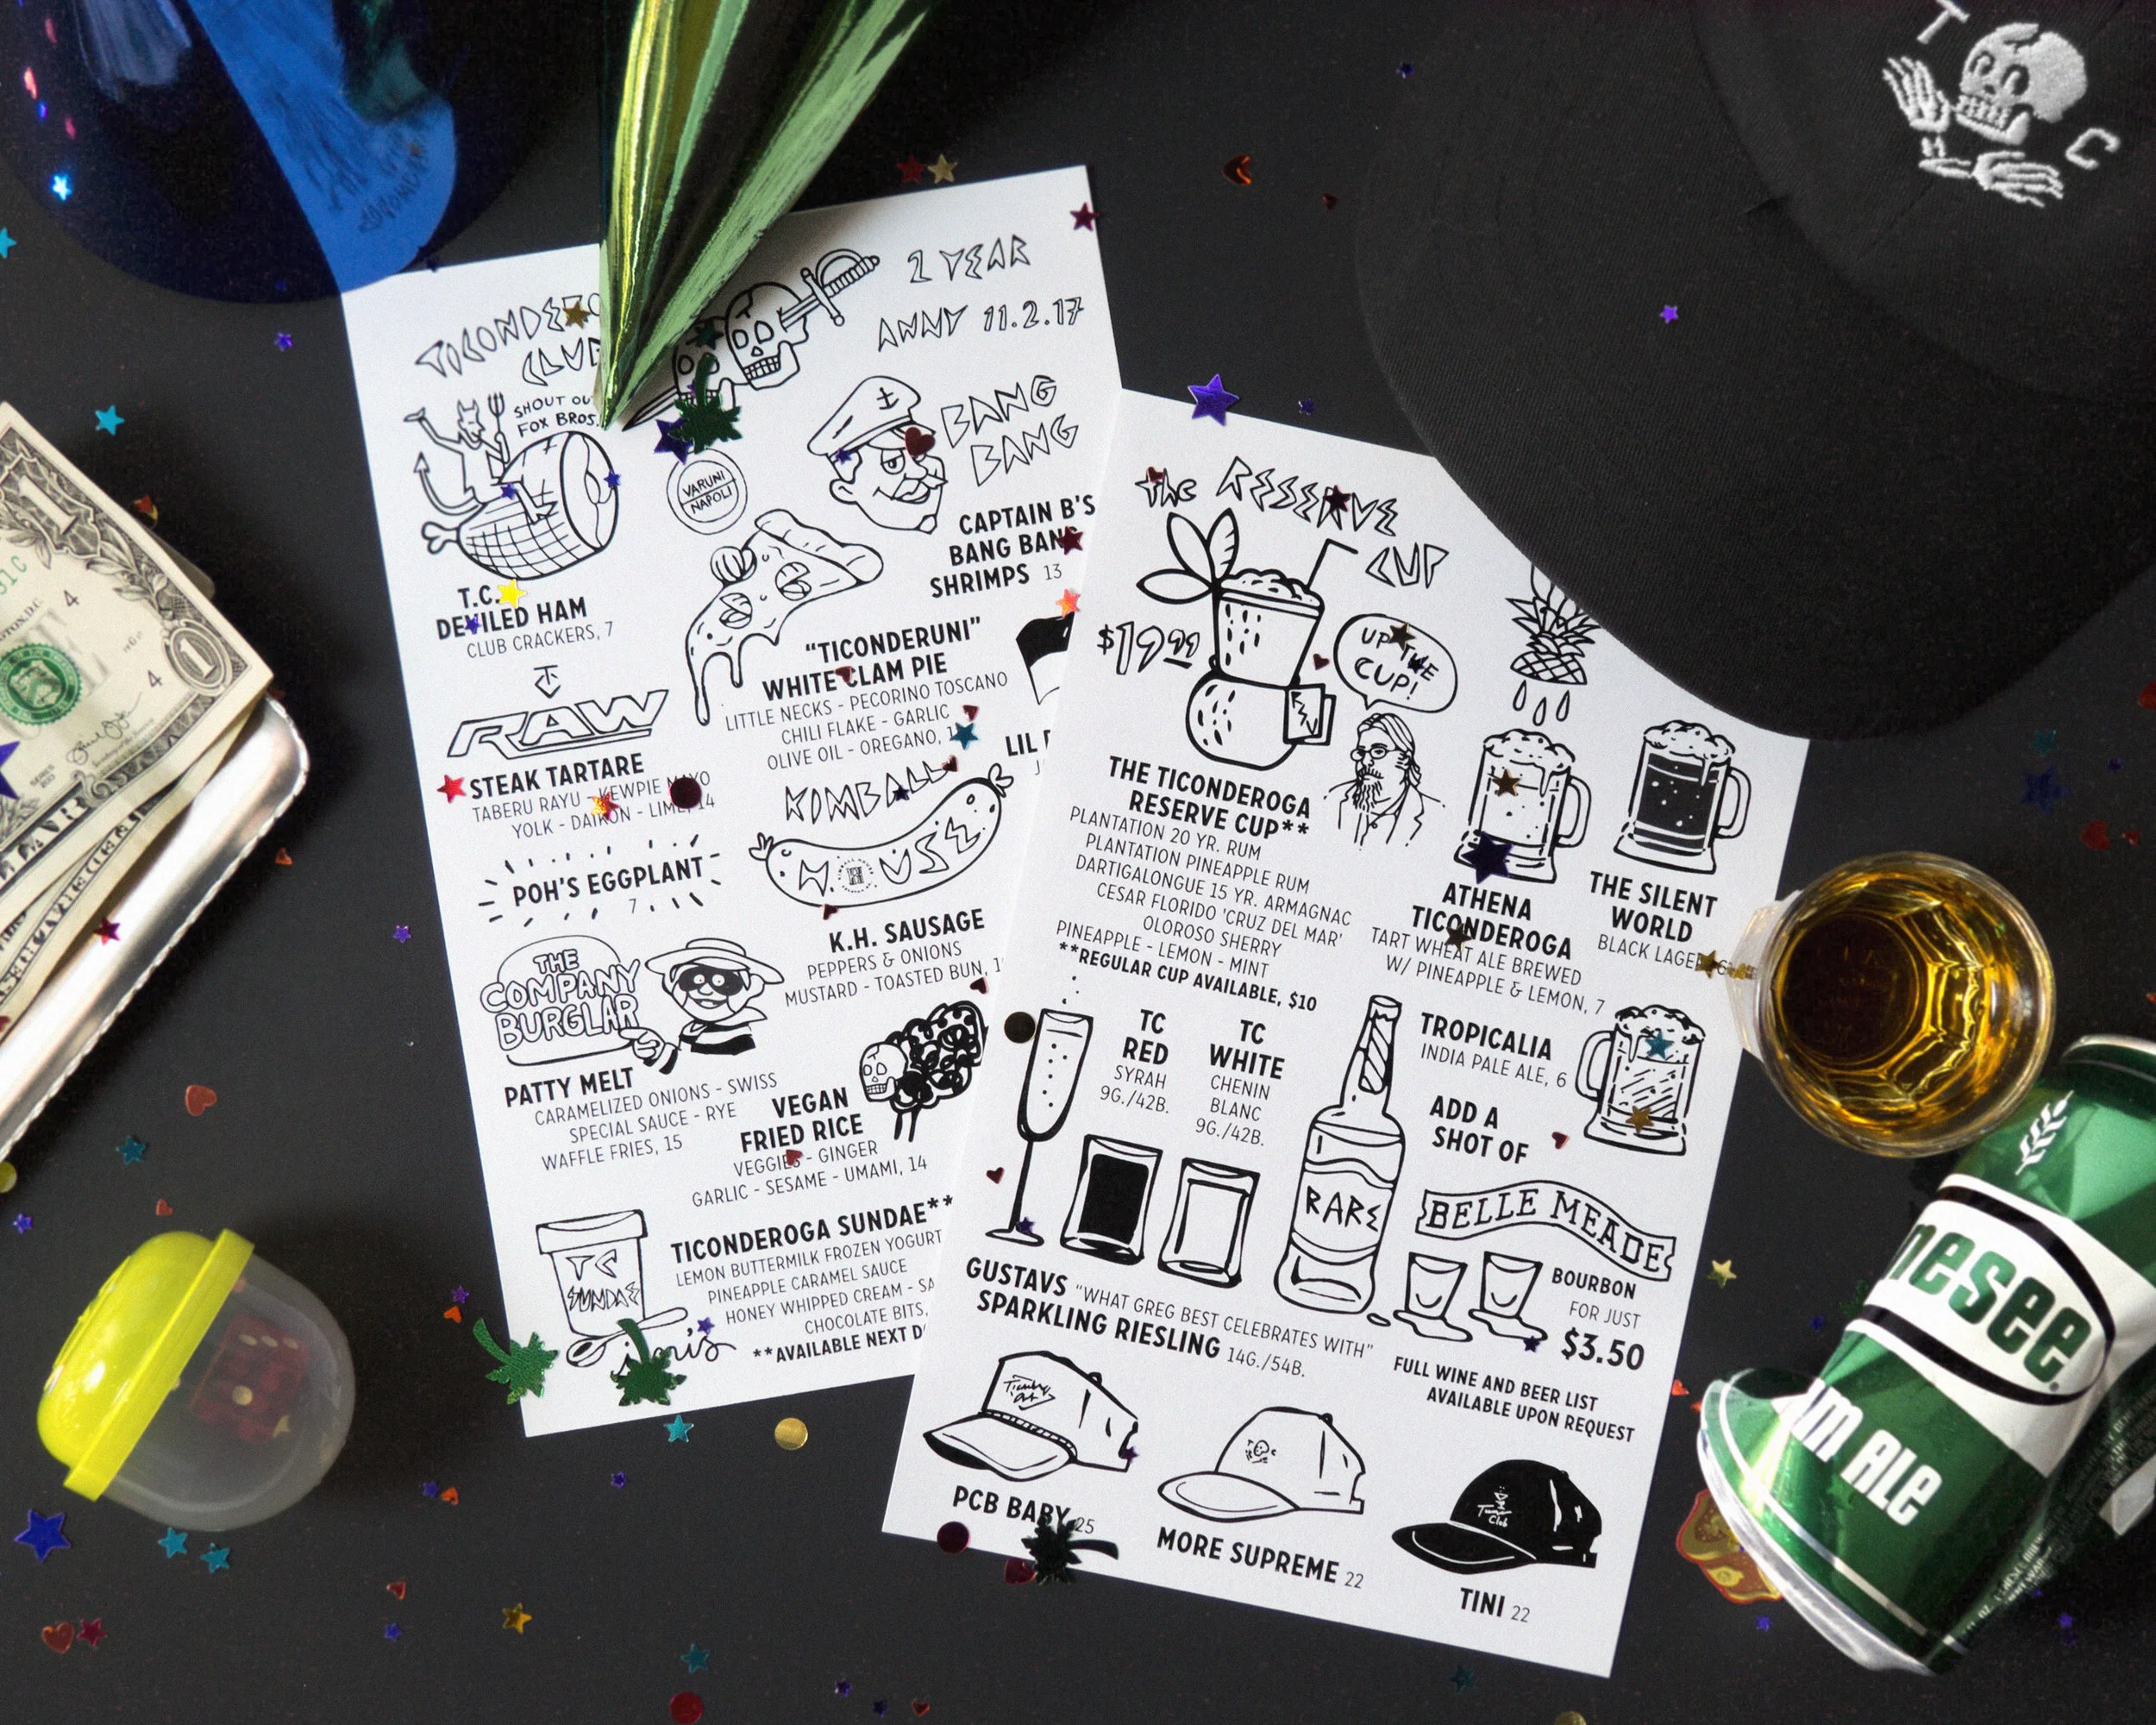 TICONDERO
CLUB
2 YEAR
ANNY 11.2.17
SHOUT OU
FOX BROS.
VARUNI
NAPOLI
BANG
BANG
T.C.
DEVILED HAM
CLUB CRACKERS, 7
CAPTAIN B'S
BANG BANG
SHRIMPS 13
"TICONDERUNI"
WHITE CLAM PIE
LITTLE NECKS - PECORINO TOSCANO
CHILI FLAKE - GARLIC
OLIVE OIL - OREGANO,
TC
RAW
STEAK TARTARE
TABERU RAYU - KEWPIE MAYO
YOLK - DAIKON - LIME, 14
LIL
POH'S EGGPLANT
7
KIMBALL
HOUSE
K.H. SAUSAGE
PEPPERS & ONIONS
MUSTARD - TOASTED BUN,
THE
COMPANY
BURGLAR
PATTY MELT
CARAMELIZED ONIONS - SWISS
SPECIAL SAUCE - RYE
WAFFLE FRIES, 15
VEGAN
FRIED RICE
VEGGIES - GINGER
GARLIC - SESAME - UMAMI, 14
TC
SUNDAE
TICONDEROGA SUNDAE**
LEMON BUTTERMILK FROZEN YOGURT
PINEAPPLE CARAMEL SAUCE
HONEY WHIPPED CREAM - SA
CHOCOLATE BITS,
**AVAILABLE NEXT D
The RESERVE
CUP
$19.99
UP THE
CUP!
THE TICONDEROGA
RESERVE CUP**
PLANTATION 20 YR. RUM
PLANTATION PINEAPPLE RUM
DARTIGALONGUE 15 YR. ARMAGNAC
CESAR FLORIDO 'CRUZ DEL MAR'
OLOROSO SHERRY
PINEAPPLE - LEMON - MINT
**REGULAR CUP AVAILABLE, $10
ATHENA
TICONDEROGA
TART WHEAT ALE BREWED
W/ PINEAPPLE & LEMON, 7
THE SILENT
WORLD
BLACK LAGER, 6
TC
RED
SYRAH
9G./42B.
TC
WHITE
CHENIN
BLANC
9G./42B.
TROPICALIA
INDIA PALE ALE, 6
ADD A
SHOT OF
RARE
BELLE MEADE
BOURBON
FOR JUST
$3.50
GUSTAVS "WHAT GREG BEST CELEBRATES WITH"
SPARKLING RIESLING 14G./54B.
FULL WINE AND BEER LIST
AVAILABLE UPON REQUEST
PCB BABY 25
MORE SUPREME 22
TINI 22
T C
nesee
AM ALE
1
4
4
1